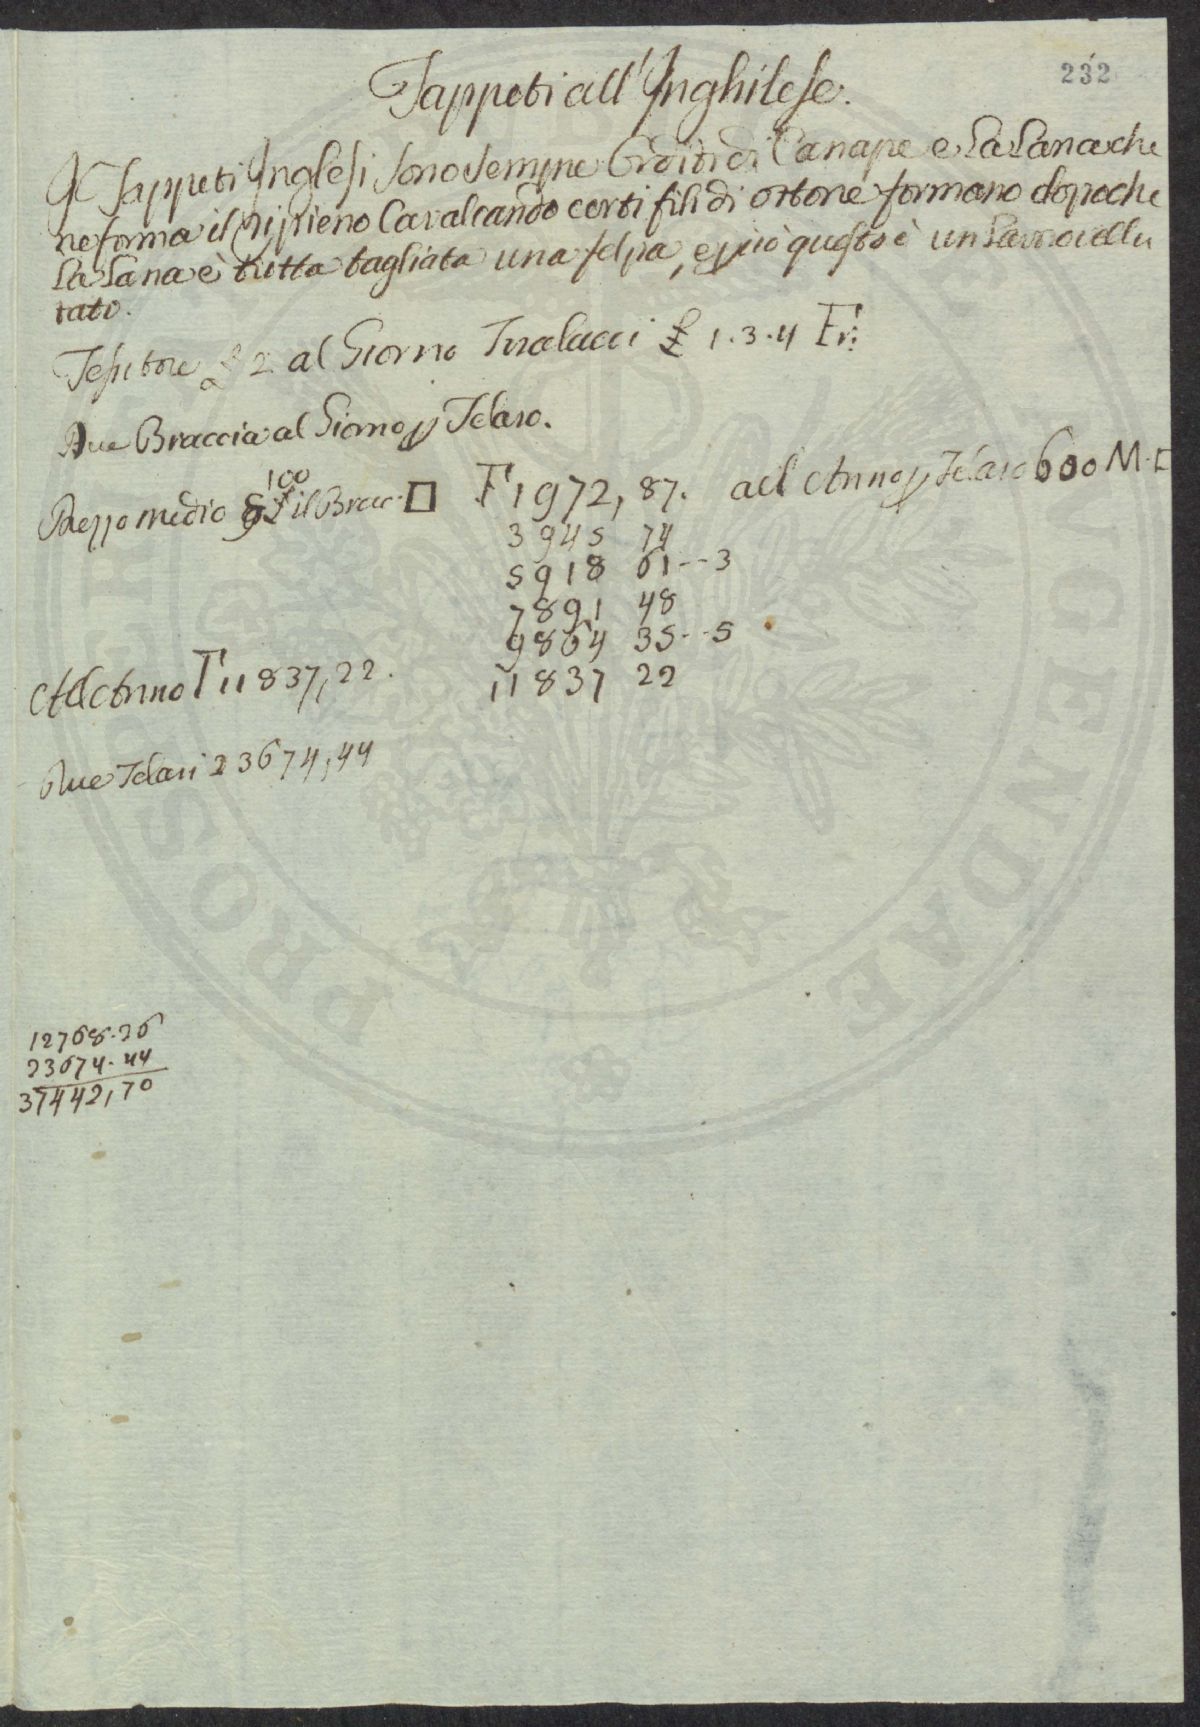 232
Tappeti all'Inghilese.
I Tappeti Inglesi sono sempre Orditi di Canape e La Lana che
ne forma il ripieno Cavalcando certi fili di ottone formano dopoche
La Lana è tutta tagliata una felpa, e più questo è un Lavoro vellu
tato.
Tesitore £ 2 al Giorno £ 1.3.4 Fr:
Due Braccia al Giorno p Telaro.
Prezzo medio 100 il Brac. □ F 1972,87. all Anno p Telaro 600 M. □
3945 74
5918 61--3
7891 48
9864 35--5
11837 22
All Anno F 11837,22.
Due Telari 23674,44
12768.26
23674.44
37442,70
PROSPERITATI PUBLICAE AUGENDAE